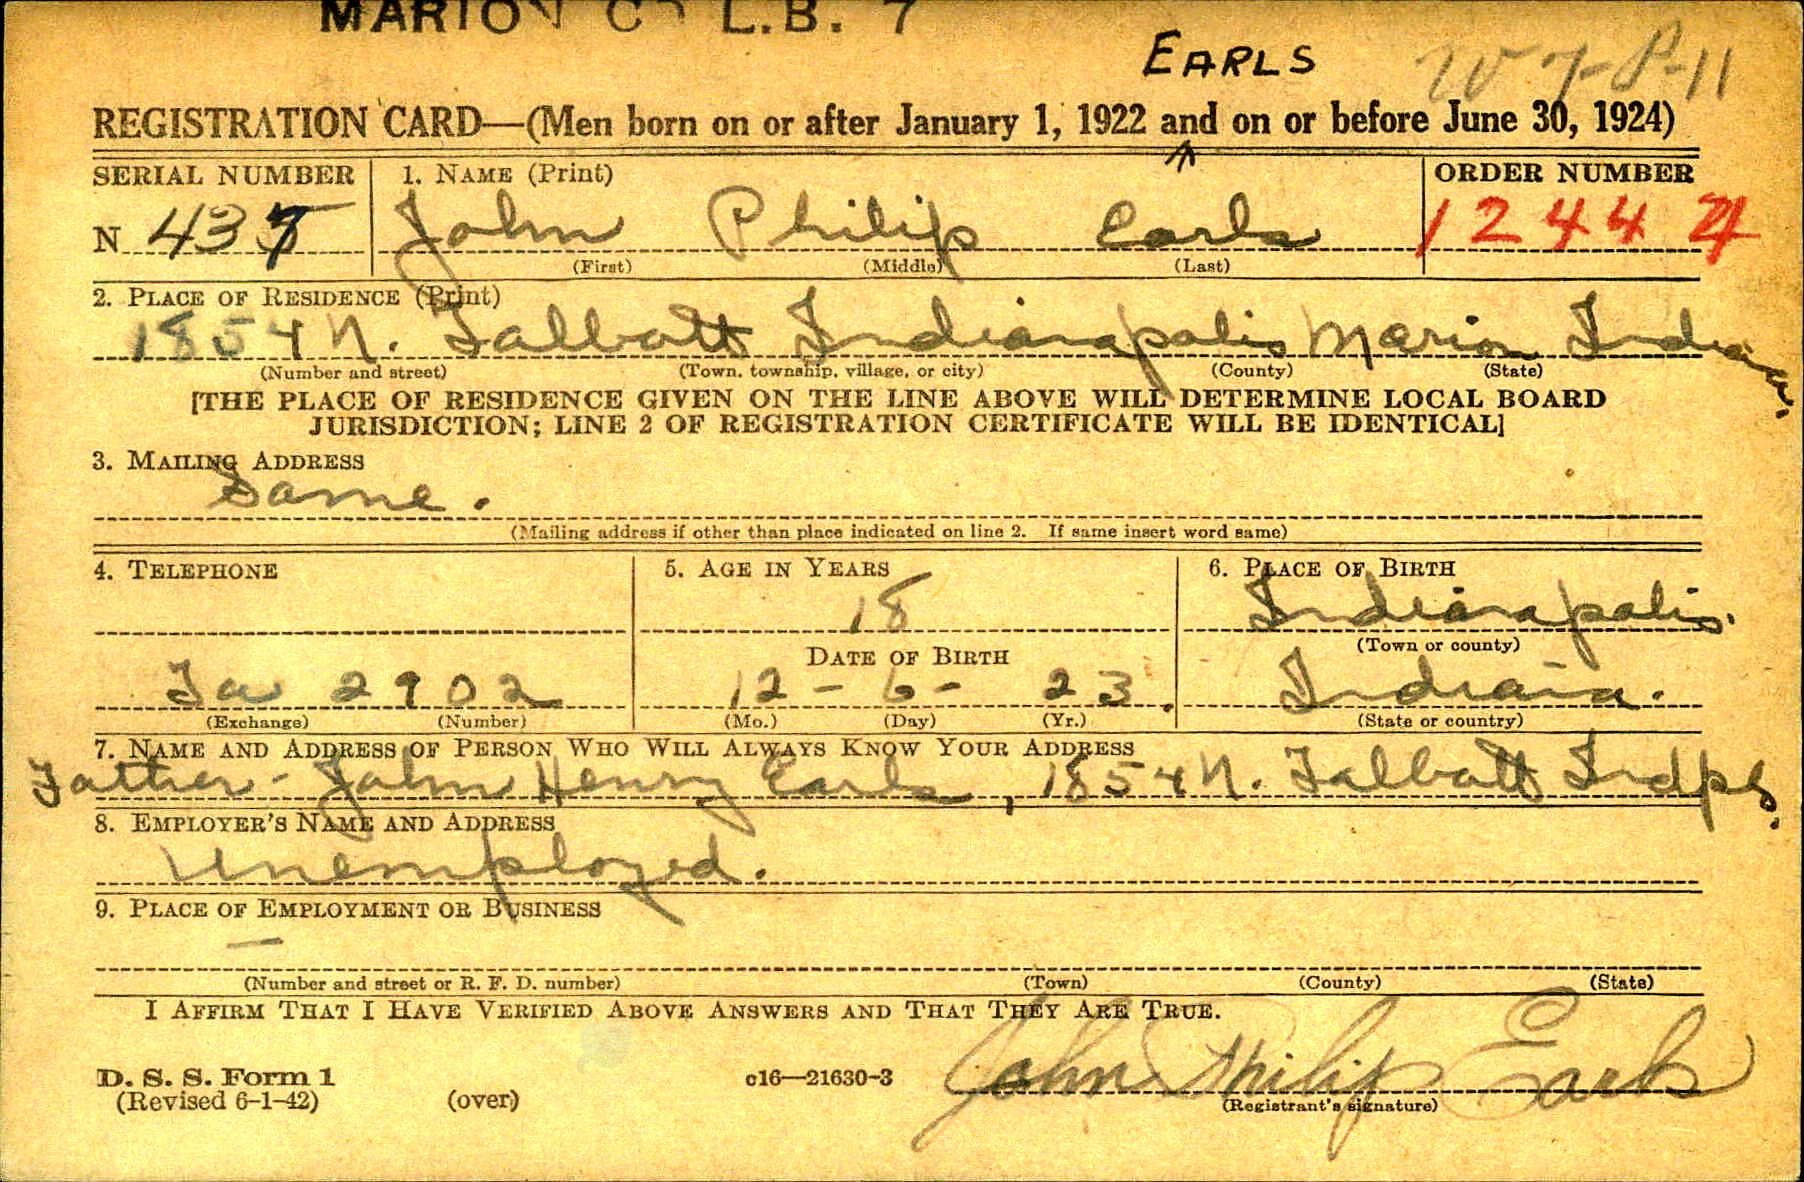 MARION CO L.B. 7
EARLS
W7-P-11
REGISTRATION CARD—(Men born on or after January 1, 1922 and on or before June 30, 1924)
SERIAL NUMBER
1. NAME (Print)
ORDER NUMBER
N 437
John Philip Earls
12444
(First) (Middle) (Last)
2. PLACE OF RESIDENCE (Print)
1854 N. Talbott Indianapolis Marion Indiana.
(Number and street) (Town, township, village, or city) (County) (State)
[THE PLACE OF RESIDENCE GIVEN ON THE LINE ABOVE WILL DETERMINE LOCAL BOARD
JURISDICTION; LINE 2 OF REGISTRATION CERTIFICATE WILL BE IDENTICAL]
3. MAILING ADDRESS
Same.
(Mailing address if other than place indicated on line 2. If same insert word same)
4. TELEPHONE
Ta 2902
(Exchange) (Number)
5. AGE IN YEARS
18
DATE OF BIRTH
12 - 6 - 23.
(Mo.) (Day) (Yr.)
6. PLACE OF BIRTH
Indianapolis.
(Town or county)
Indiana.
(State or country)
7. NAME AND ADDRESS OF PERSON WHO WILL ALWAYS KNOW YOUR ADDRESS
Father - John Henry Earls, 1854 N. Talbott Indpls.
8. EMPLOYER'S NAME AND ADDRESS
Unemployed.
9. PLACE OF EMPLOYMENT OR BUSINESS
—
(Number and street or R. F. D. number) (Town) (County) (State)
I AFFIRM THAT I HAVE VERIFIED ABOVE ANSWERS AND THAT THEY ARE TRUE.
John Philip Earls
D. S. S. Form 1
(Revised 6-1-42) (over) c16—21630-3
(Registrant's signature)